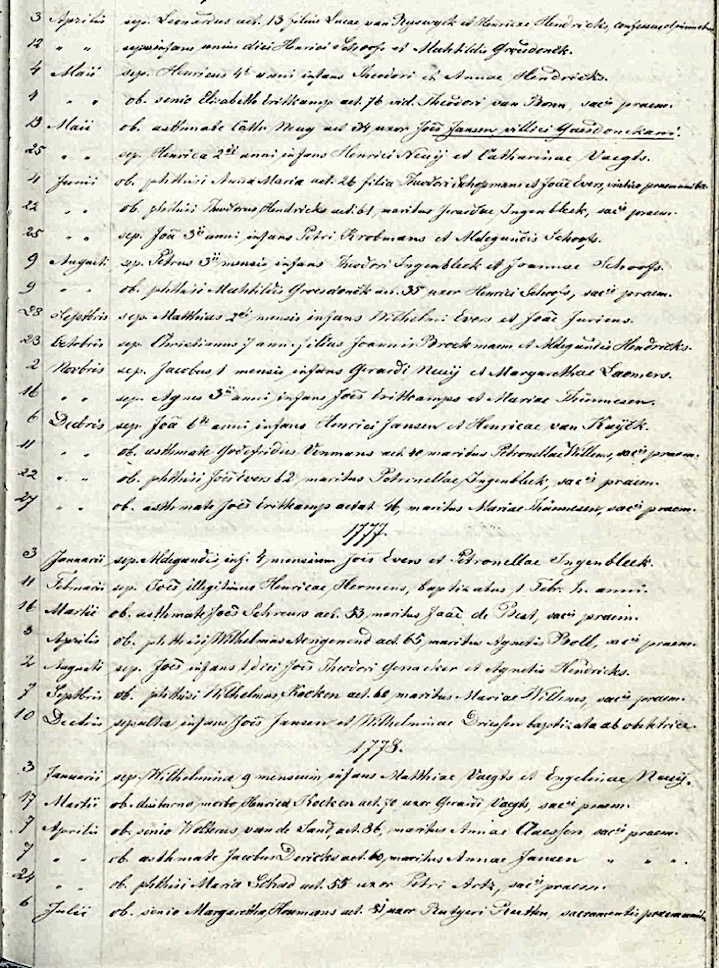 3 Aprilis sep. Leonardus aet. 13 filius Lucae van Ryswyck et Henricae Hendricks, confessus et
12 " " sep. infans unius diei Henrici Schoofs et Mechtildis Groesdonck.
4 Maii sep. Henricus 4ti anni infans Theodori et Annae Hendricks.
4 " " ob. senio Elisabeth Eritkamp aet. 76 vid. Theodori van Bonn, sacis praem.
13 Maii ob. asthmate Cath. Neuy aet. 34 uxor Jois Jansen villici Gaesdonckani.
25 " " sep. Henrica 2di anni infans Henrici Neuij et Catharinae Vaegts.
4 Junii ob. phthisi Anna Maria aet. 26 filia Theodori Schopmans et Joae Evers, viatico praemunita.
22 " " ob. phthisi Theodorus Hendricks aet. 61, maritus Gerardae Ingenbleek, sacis praem.
25 " " sep. Joa 3ii anni, infans Petri Krobmans et Aldegundis Schoofs.
9 Augusti sep. Petrus 3ii mensis infans Theodori Ingenbleek et Joannae Schoofs.
9 " ob. phthisi Mechtildis Groesdonck aet. 35 uxor Henrici Schoofs, sacis praem.
23 Septbris sep. Matthias 2di mensis infans Wilhelmi Evers et Joae Juriens.
23 Octbris sep. Christianus 7 ann. filius Joannis Brockmann et Aldegundis Hendricks.
2 Novbris sep. Jacobus 1 mensis, infans Gerardi Neuij et Margarethae Laemers.
16 " " sep. Agnes 3ii anni, infans Jois Eritkamps et Mariae Thünnesen.
6 Decbris sep. Joa 6ti anni, infans Henrici Jansen et Henricae van Kuijck.
11 " " ob. asthmate Godefridus Venmans aet. 40 maritus Petronellae Willems, sacis praem.
22 " " ob. phthisi Jois Evers 62, maritus Petronellae Ingenbleek, sacis praem.
27 " " ob. asthmate Jois Eritkamp aetat. 46, maritus Mariae Thünnesen, sacis praem.
1777.
3 Januarii sep. Aldegundis, inf. 4 mensium Jois Evers et Petronellae Ingenbleek.
11 Februarii sep. Jois illegitimus Henricae Hermens, baptizatus 1 Febr. h. anni.
16 Martii ob. asthmate Jois Schreurs aet. 53, maritus Joae de Best, sacis praem.
3 Aprilis ob. phthisi Wilhelmus Aengenend aet. 65, maritus Agnetis Boll, sacis praem.
2 Augusti sep. Jois infans 1 diei Jois Theodori Gonacker et Agnetis Hendricks.
7 Septbris ob. phthisi Wilhelmus Kocken aet. 60, maritus Mariae Willems, sacis praem.
10 Decbris sepulta infans Jois Jansen et Wilhelminae Driessen baptizata ab obstetrice.
1778.
3 Januarii sep. Wilhelmina 9 mensium infans Matthiae Vaegts et Engelinae Neuij.
17 Martii ob. diuturno morbo, Henrica Kocken aet. 70 uxor Gerardi Vaegts, sacis praem.
7 Aprilis ob. senio Wolterus van de Sand, aet. 86, maritus Annae Claessen, sacis praem.
7 " " ob. asthmate Jacobus Dericks aet. 60, maritus Annae Jansen " " .
24 " " ob. phthisi Maria Schad aet. 55 uxor Petri Artz, sacis praem.
6 Julii ob. senio Margaretha Heumans aet. 81 uxor Rutgeri Rutten, sacramentis praemunita